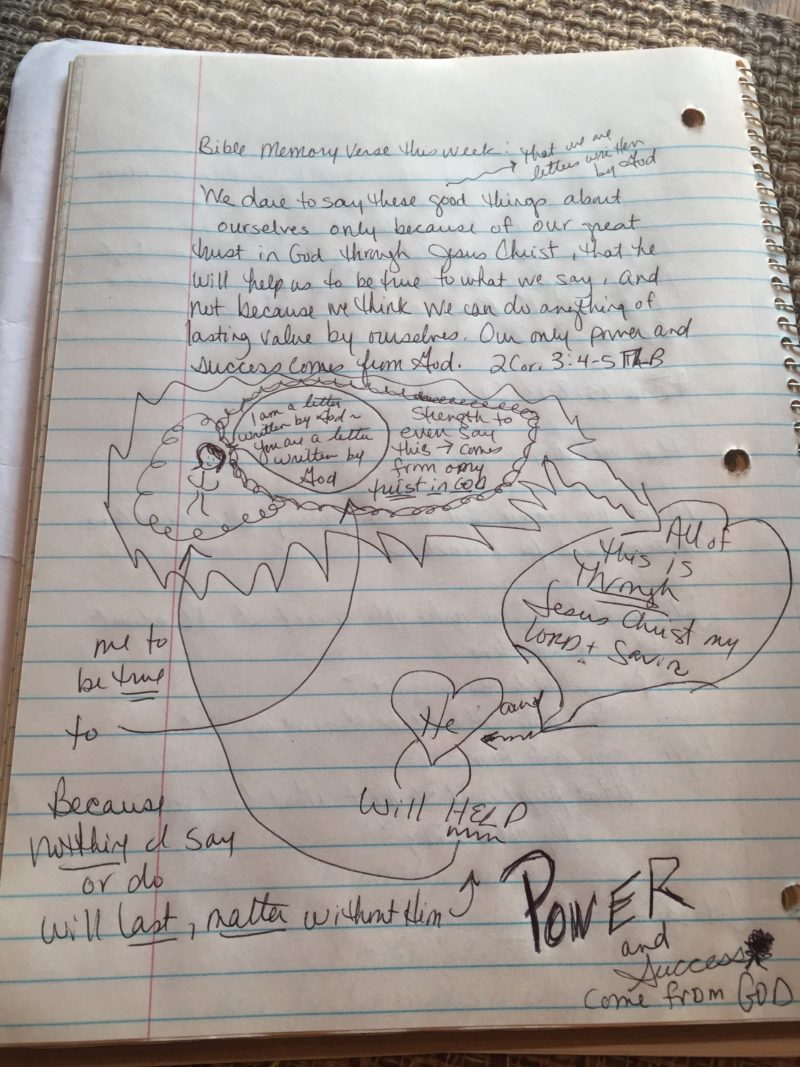 Bible Memory Verse this week:
that we are
letters written
by God
We dare to say these good things about
ourselves only because of our great
trust in God through Jesus Christ, that he
will help us to be true to what we say, and
not because we think we can do anything of
lasting value by ourselves. Our only power and
success comes from God. 2 Cor. 3:4-5 TLB
I am a letter
written by God ~
You are a letter
written by
God
Strength to
even say
this → comes
from only
trust in GOD
All of
this is
through
Jesus Christ my
LORD + Savior
me to
be true
to
He
and
Will HELP
Because
nothing I say
or do
will last, matter without Him
POWER
and
Success
come from GOD